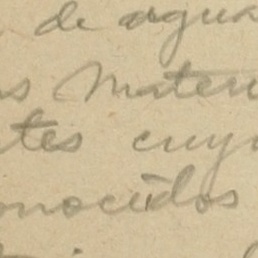 de agua
s Mater
tes cuy
onocidos